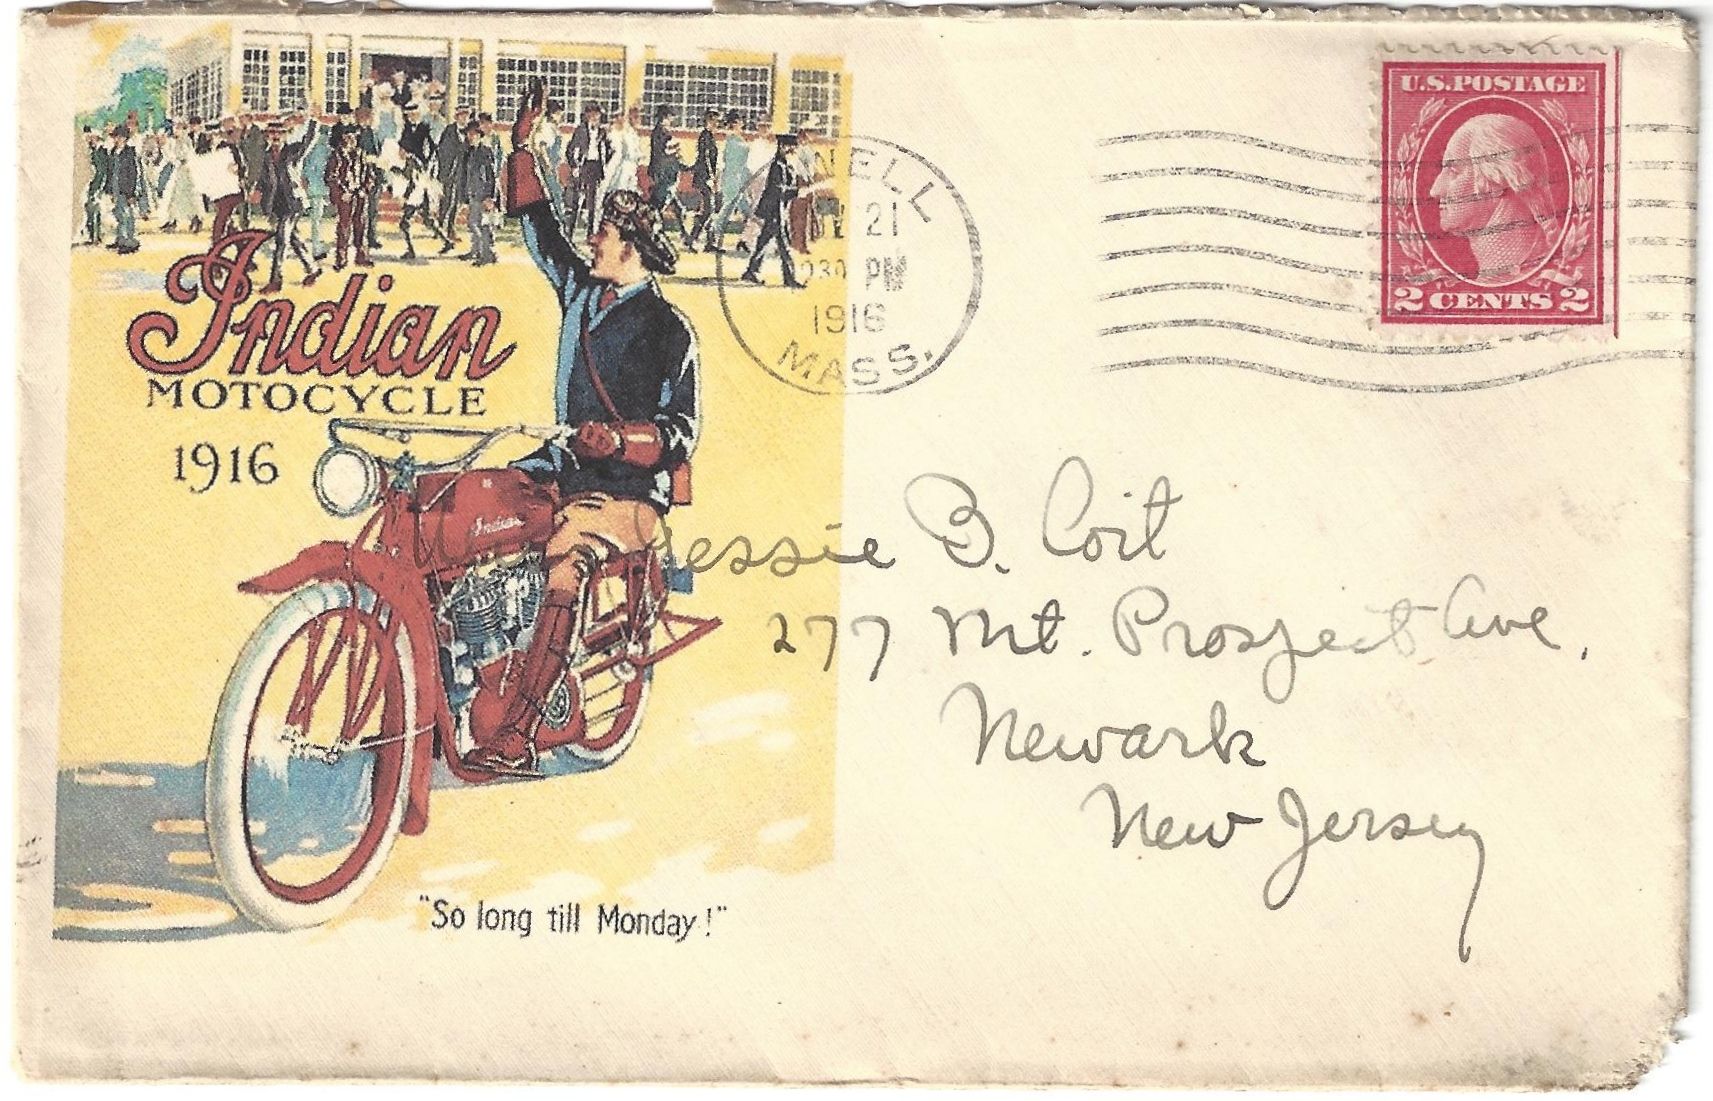 Indian
MOTOCYCLE
1916
Indian
"So long till Monday!"
21
230 PM
1916
MASS.
U.S. POSTAGE
2 CENTS 2
Jessie B. Coit
277 Mt. Prospect Ave.
Newark
New Jersey